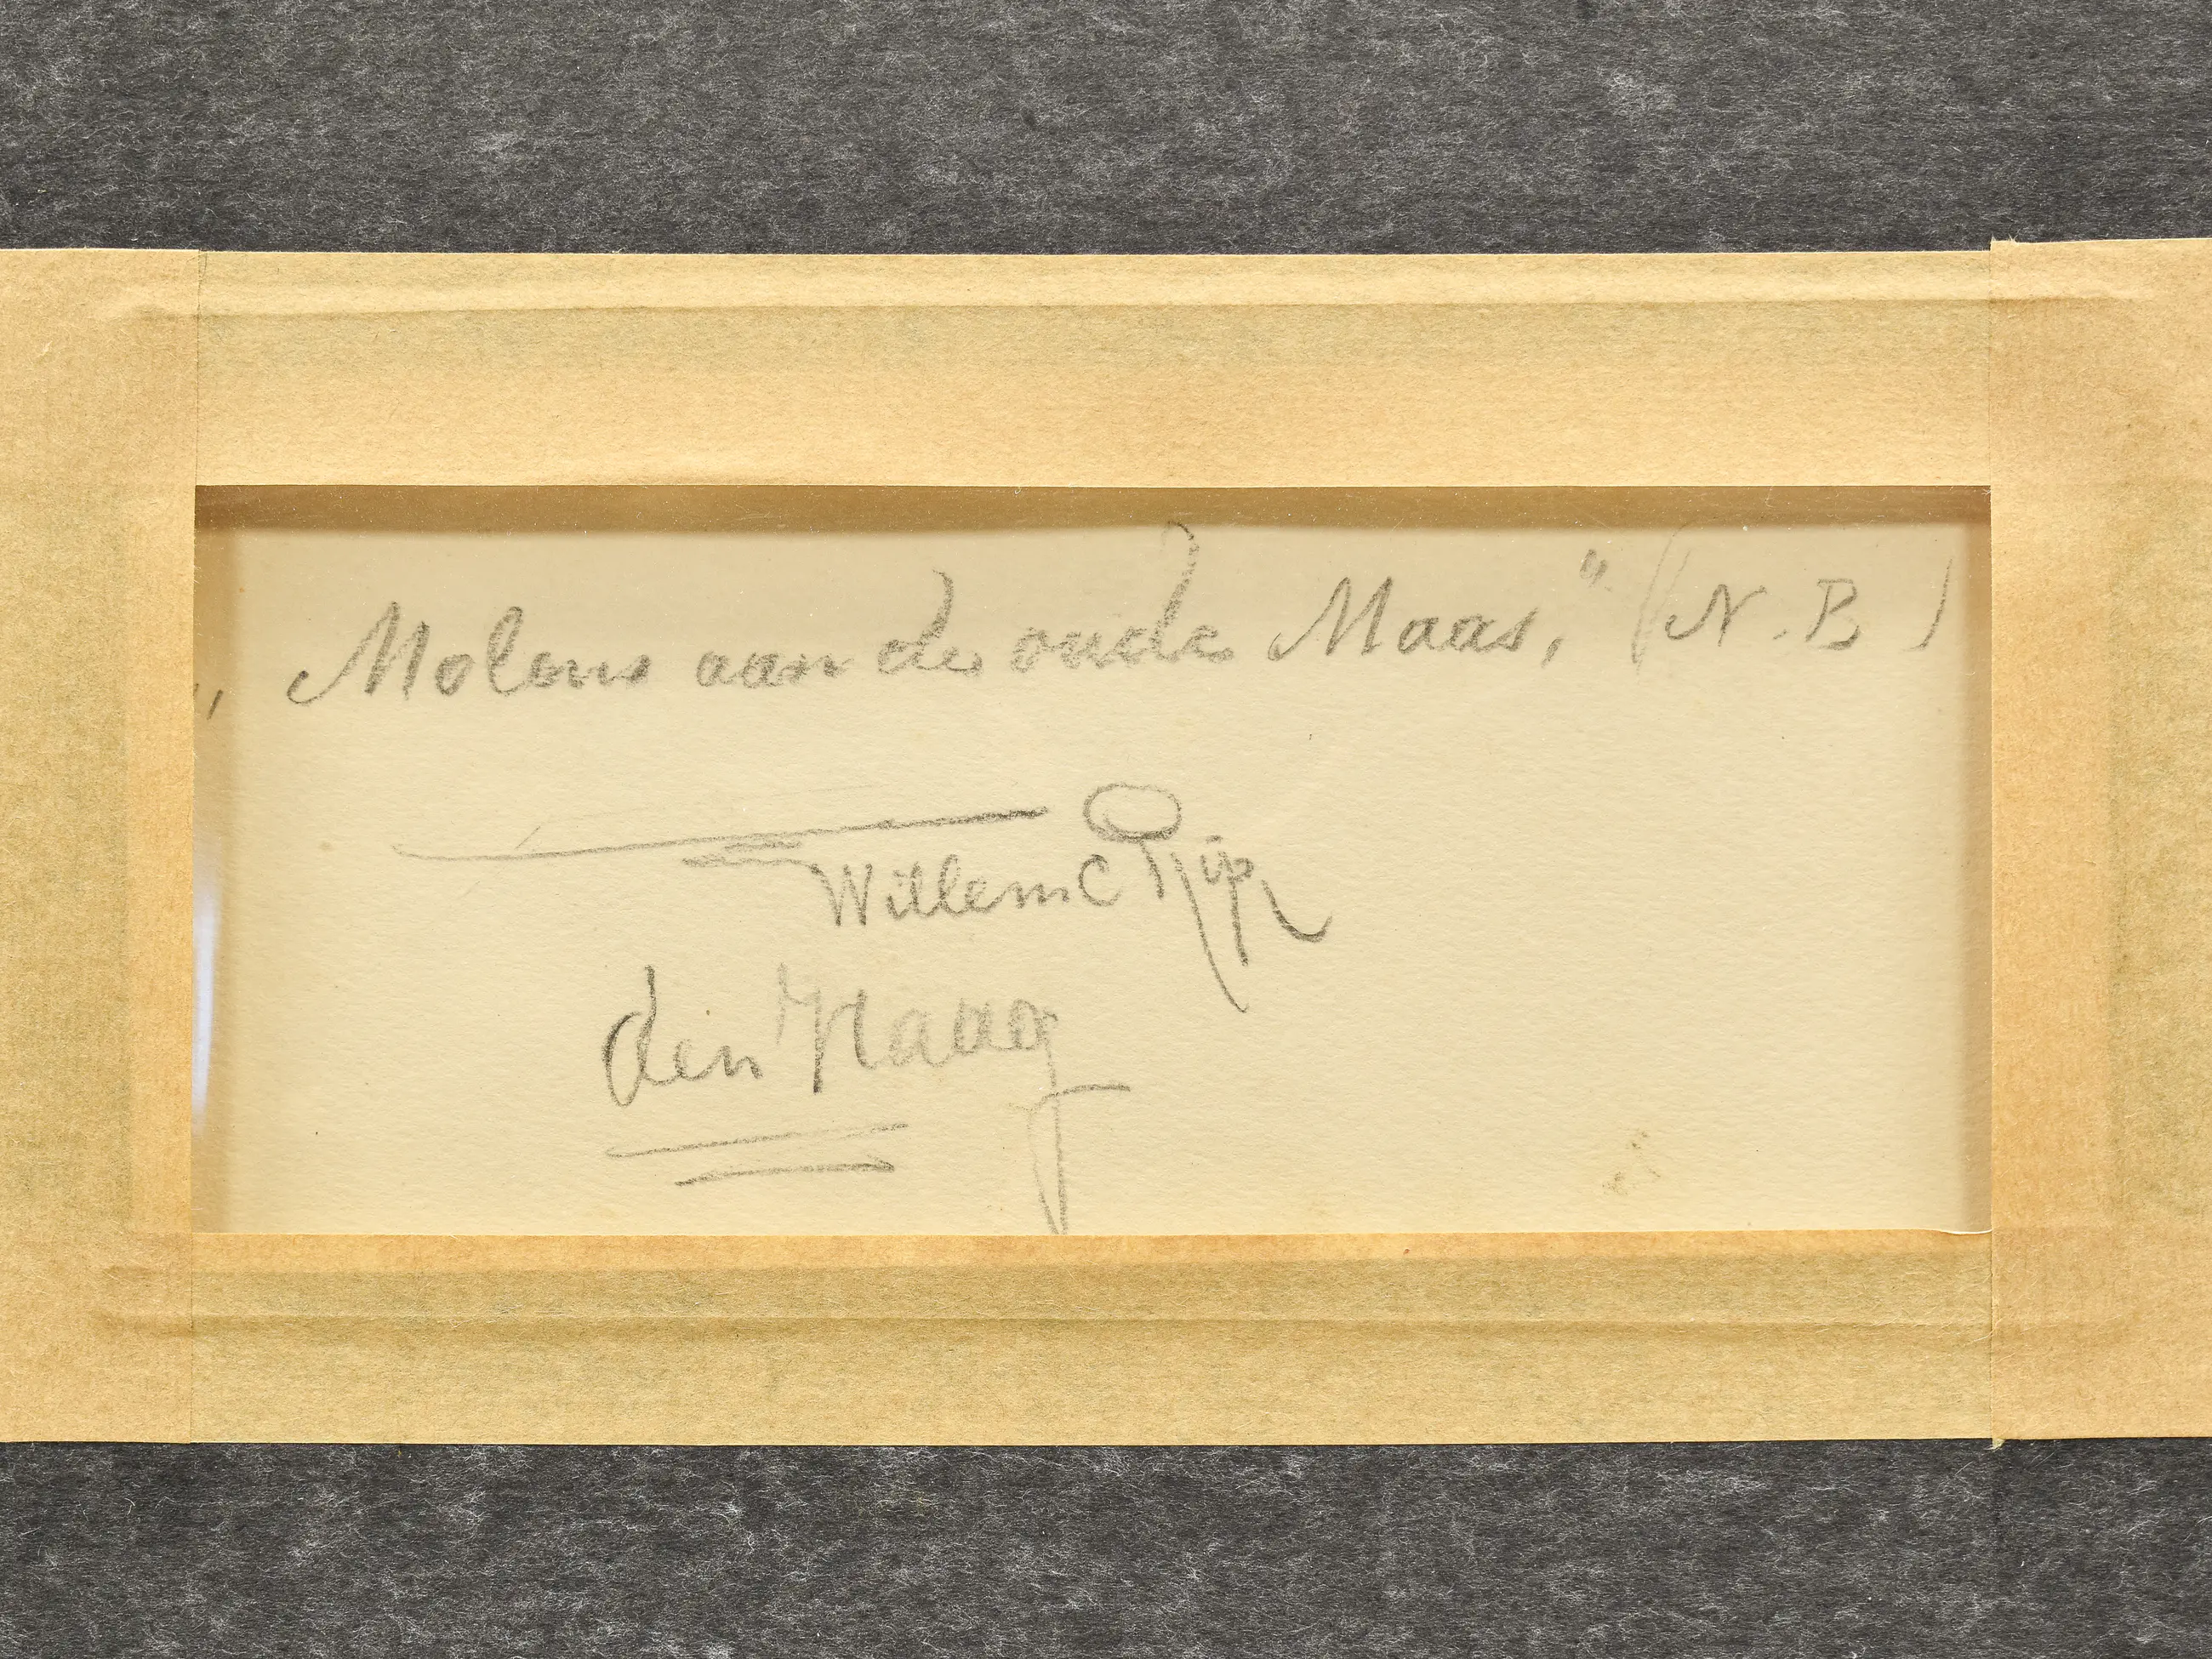 „Molens aan de oude Maas,” (N.B)
Willem C Rip
den Haag